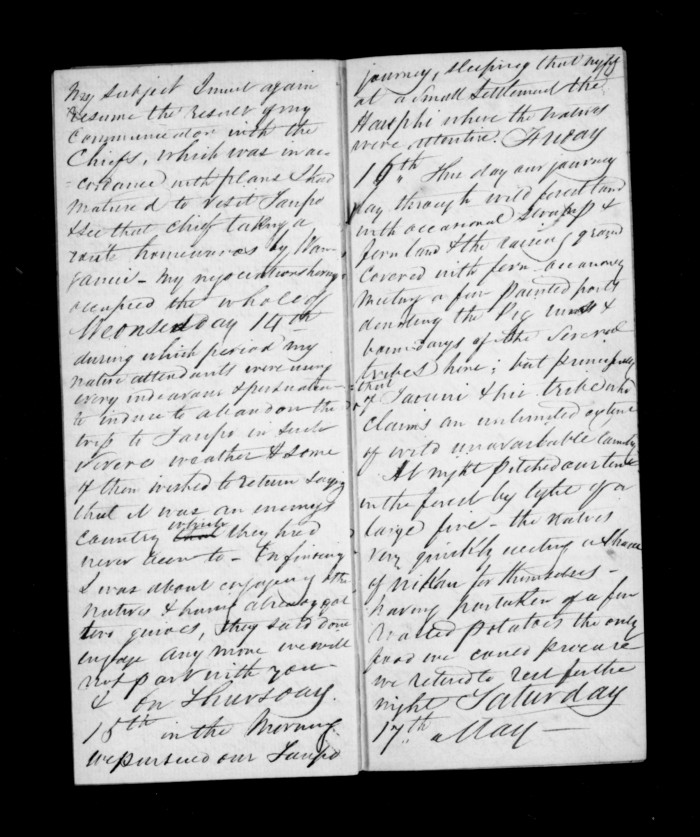 my subject I must again
resume the result of my
Communication with the
Chiefs, which was in ac
-cordance with plans I had
matured to visit Taupo
& see that chief taking a
route homewards by Wan
ganui - my negociations having
occupied the whole of
Wednesday 14th
during which period my
native attendants were using
every endeavour & persuasion
to induce to abandon the
trip to Taupo in such
severe weather & some
of them wished to return saying
that it was an enemys
country which they had
never been to - On finding
I was about engaging other
natives & having already got
two guides, they said dont
engage any more we will
not part with you
& on Thursday
15th in the Morning
we pursued our Taupo
journey, sleeping that night
at a small settlement the
where the natives
were attentive. Friday
16th This day our journey
lay through wild forest land
with occasional swamp &
fern land & the rising ground
covered with fern occasionally
meeting a few painted posts
denoting the Pig runs &
boundarys of the several
tribes here; but principally
that
of & his tribe who
claims an unlimited extent
of wild unavailable country
At night pitched our tent
in the forest by light of a
large fire - the natives
very quickly erecting a
of nikau for themselves -
having partaken of a few
roasted potatoes the only
food we could procure
we retired to rest for the
night Saturday
17th May -